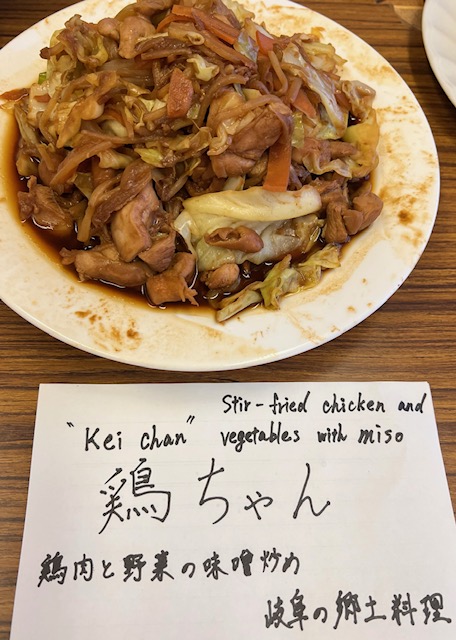 Stir-fried chicken and
"Kei chan" vegetables with miso
鶏ちゃん
鶏肉と野菜の味噌炒め
岐阜の郷土料理